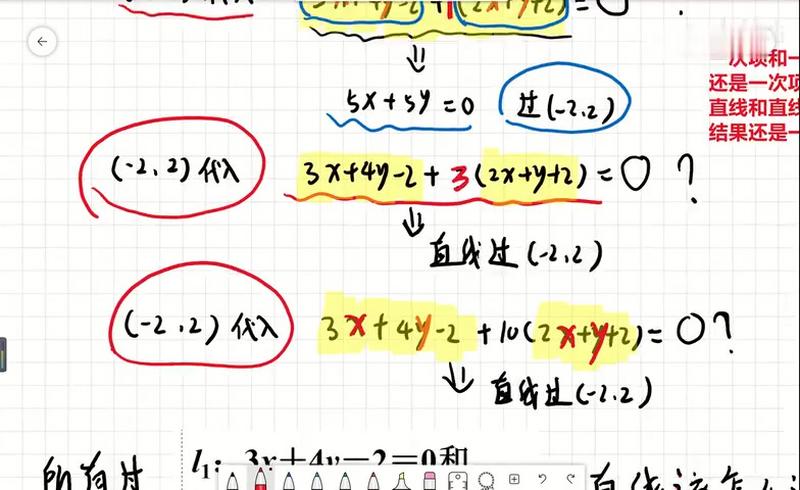 3x+4y-2+1(2x+y+2)=0 ?
次项和一
还是一次项
直线和直线
结果还是一
5x+5y=0 过(-2,2)
(-2,2)代入 3x+4y-2+3(2x+y+2)=0?
直线过(-2,2)
(-2,2)代入 3x+4y-2+10(2x+y+2)=0?
直线过(-2,2)
所有过 l₁: 3x+4y-2=0和